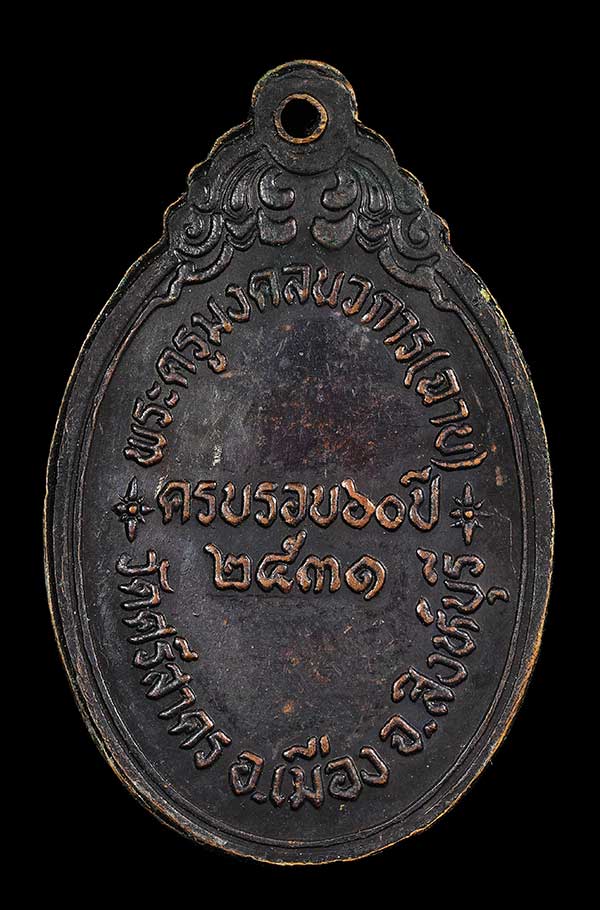 พระครูมงคลนวการ(ฉาบ)
ครบรอบ๖๐ปี
๒๕๓๑
วัดศรีสาคร อ.เมือง จ.สิงห์บุรี